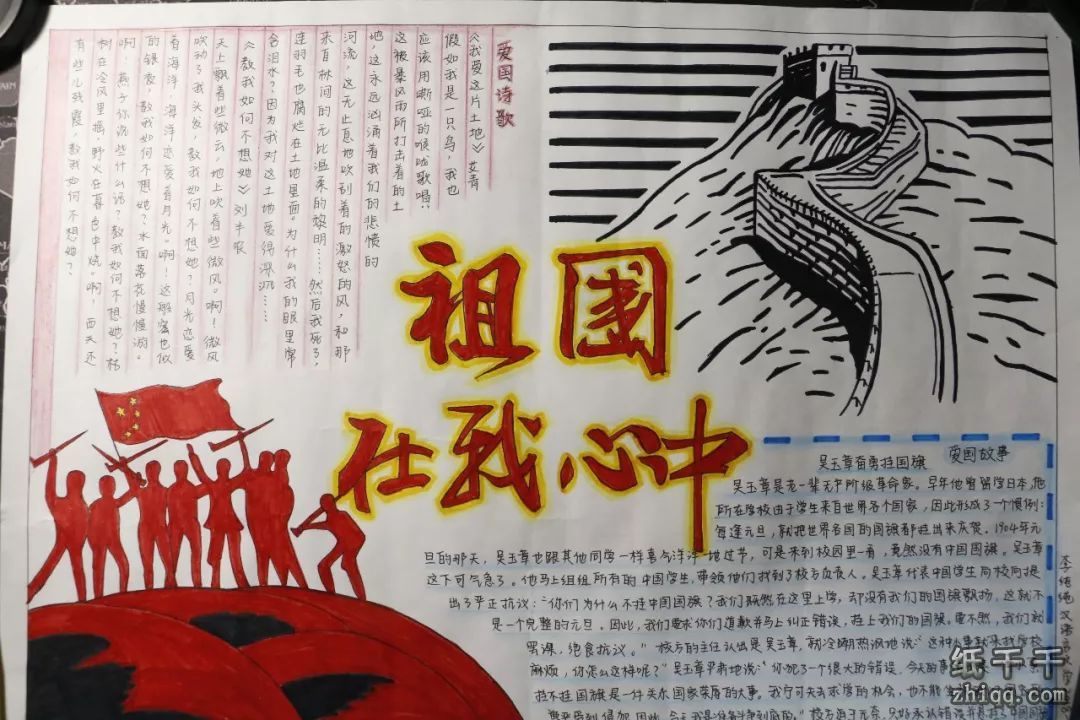 爱国诗歌
《我爱这片土地》艾青
假如我是一只鸟，我也
应该用嘶哑的喉咙歌唱：
这被暴风雨所打击着的土
地，这永远汹涌着我们的悲愤的
河流，这无止息地吹刮着的激怒的风，和那
来自林间的无比温柔的黎明……然后我死了，
连羽毛也腐烂在土地里面。为什么我的眼里常
含泪水？因为我对这土地爱得深沉……
《教我如何不想她》刘半农
天上飘着些微云，地上吹着些微风。啊！微风
吹动了我头发，教我如何不想她？月光恋爱
着海洋，海洋恋爱着月光。啊！这般蜜也似
的银夜，教我如何不想她？水面落花慢慢游。
啊！燕子你说些什么话？教我如何不想她？枯
树在冷风里摇，野火在暮色中烧。啊！西天还
有些儿残霞，教我如何不想她？
祖国
在我心中
吴玉章奋勇挂国旗 爱国故事
吴玉章是老一辈无产阶级革命家。早年他曾留学日本，他
所在学校由于学生来自世界各个国家，因此形成了一个惯例：
每逢元旦，就把世界各国的国旗都挂出来庆贺。1904年元
旦的那天，吴玉章也跟其他同学一样喜气洋洋地过节，可是来到校园里一看，竟然没有中国国旗。吴玉章
这下可气急了。他马上组组所有的中国学生，带领他们找到了校方负责人。吴玉章代表中国学生向校向提
出了严正抗议：“你们为什么不挂中国国旗？我们既然在这里上学，却没有我们的国旗飘扬，这就不
是一个完整的元旦。因此，我们要求你们道歉并马上纠正错误，挂上我们的国旗。要不然，我们就
罢课，绝食抗议。”校方的主任认出是吴玉章，就冷嘲热讽地说：“这种
麻烦，你怎么这样呢？”吴玉章平静地说：“你犯了一个很大的错误，今天的事
挂不挂国旗是一件关系国家荣辱的大事。我宁可失去求学的机会，也不能
纸千千
zhiqq.com